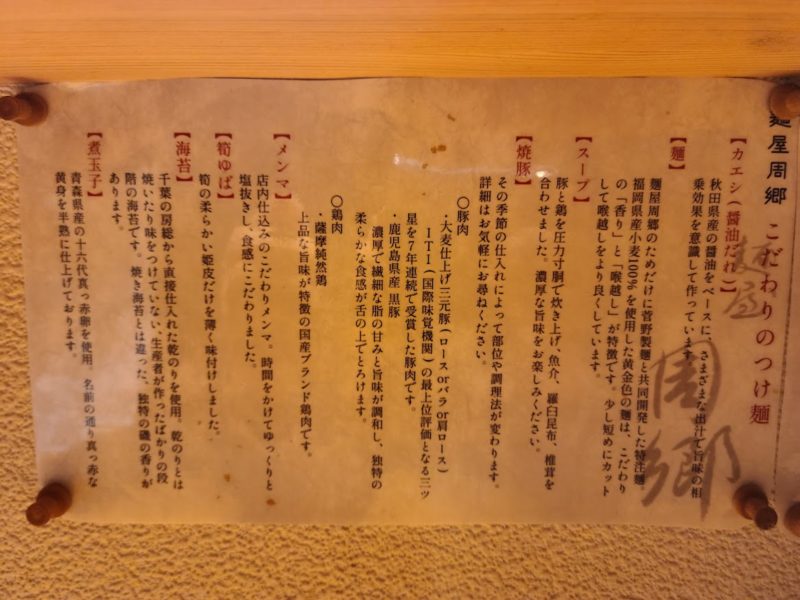 麺屋周郷 こだわりのつけ麺
【カエシ(醤油だれ)】
秋田県産の醤油をベースに、さまざまな出しで旨味の相
乗効果を意識して作っています。
【麺】
麺屋周郷のためだけに菅野製麺と共同開発した特注麺。
福岡県産小麦100%を使用した黄金色の麺は、こだわり
の「香り」と「喉越し」が特徴です。少し短めにカット
して喉越しをより良くしています。
【スープ】
豚と鶏を圧力寸胴で炊き上げ、魚介、羅臼昆布、椎茸を
合わせました。濃厚な旨味をお楽しみください。
【焼豚】
その季節の仕入れによって部位や調理法が変わります。
詳細はお気軽にお尋ねください。
〇豚肉
・大麦仕上げ三元豚(ロースorバラor肩ロース)
ITI(国際味覚機関)の最上位評価となる三ツ
星を7年連続で受賞した豚肉です。
・鹿児島県産 黒豚
濃厚で繊細な脂の甘みと旨味が調和し、独特の
柔らかな食感が舌の上でとろけます。
〇鶏肉
・薩摩純然鶏
上品な旨味が特徴の国産ブランド鶏肉です。
【メンマ】
店内仕込みのこだわりメンマ。時間をかけてゆっくりと
塩抜きし、食感にこだわりました。
【筍ゆば】
筍の柔らかい姫皮だけを薄く味付けしました。
【海苔】
千葉の房総から直接仕入れた乾のりを使用。乾のりとは
焼いたり味をつけていない、生産者が作ったばかりの段
階の海苔です。焼き海苔とは違った、独特の磯の香りが
あります。
【煮玉子】
青森県産の十六代真っ赤卵を使用。名前の通り真っ赤な
黄身を半熟に仕上げております。
麺屋
周郷